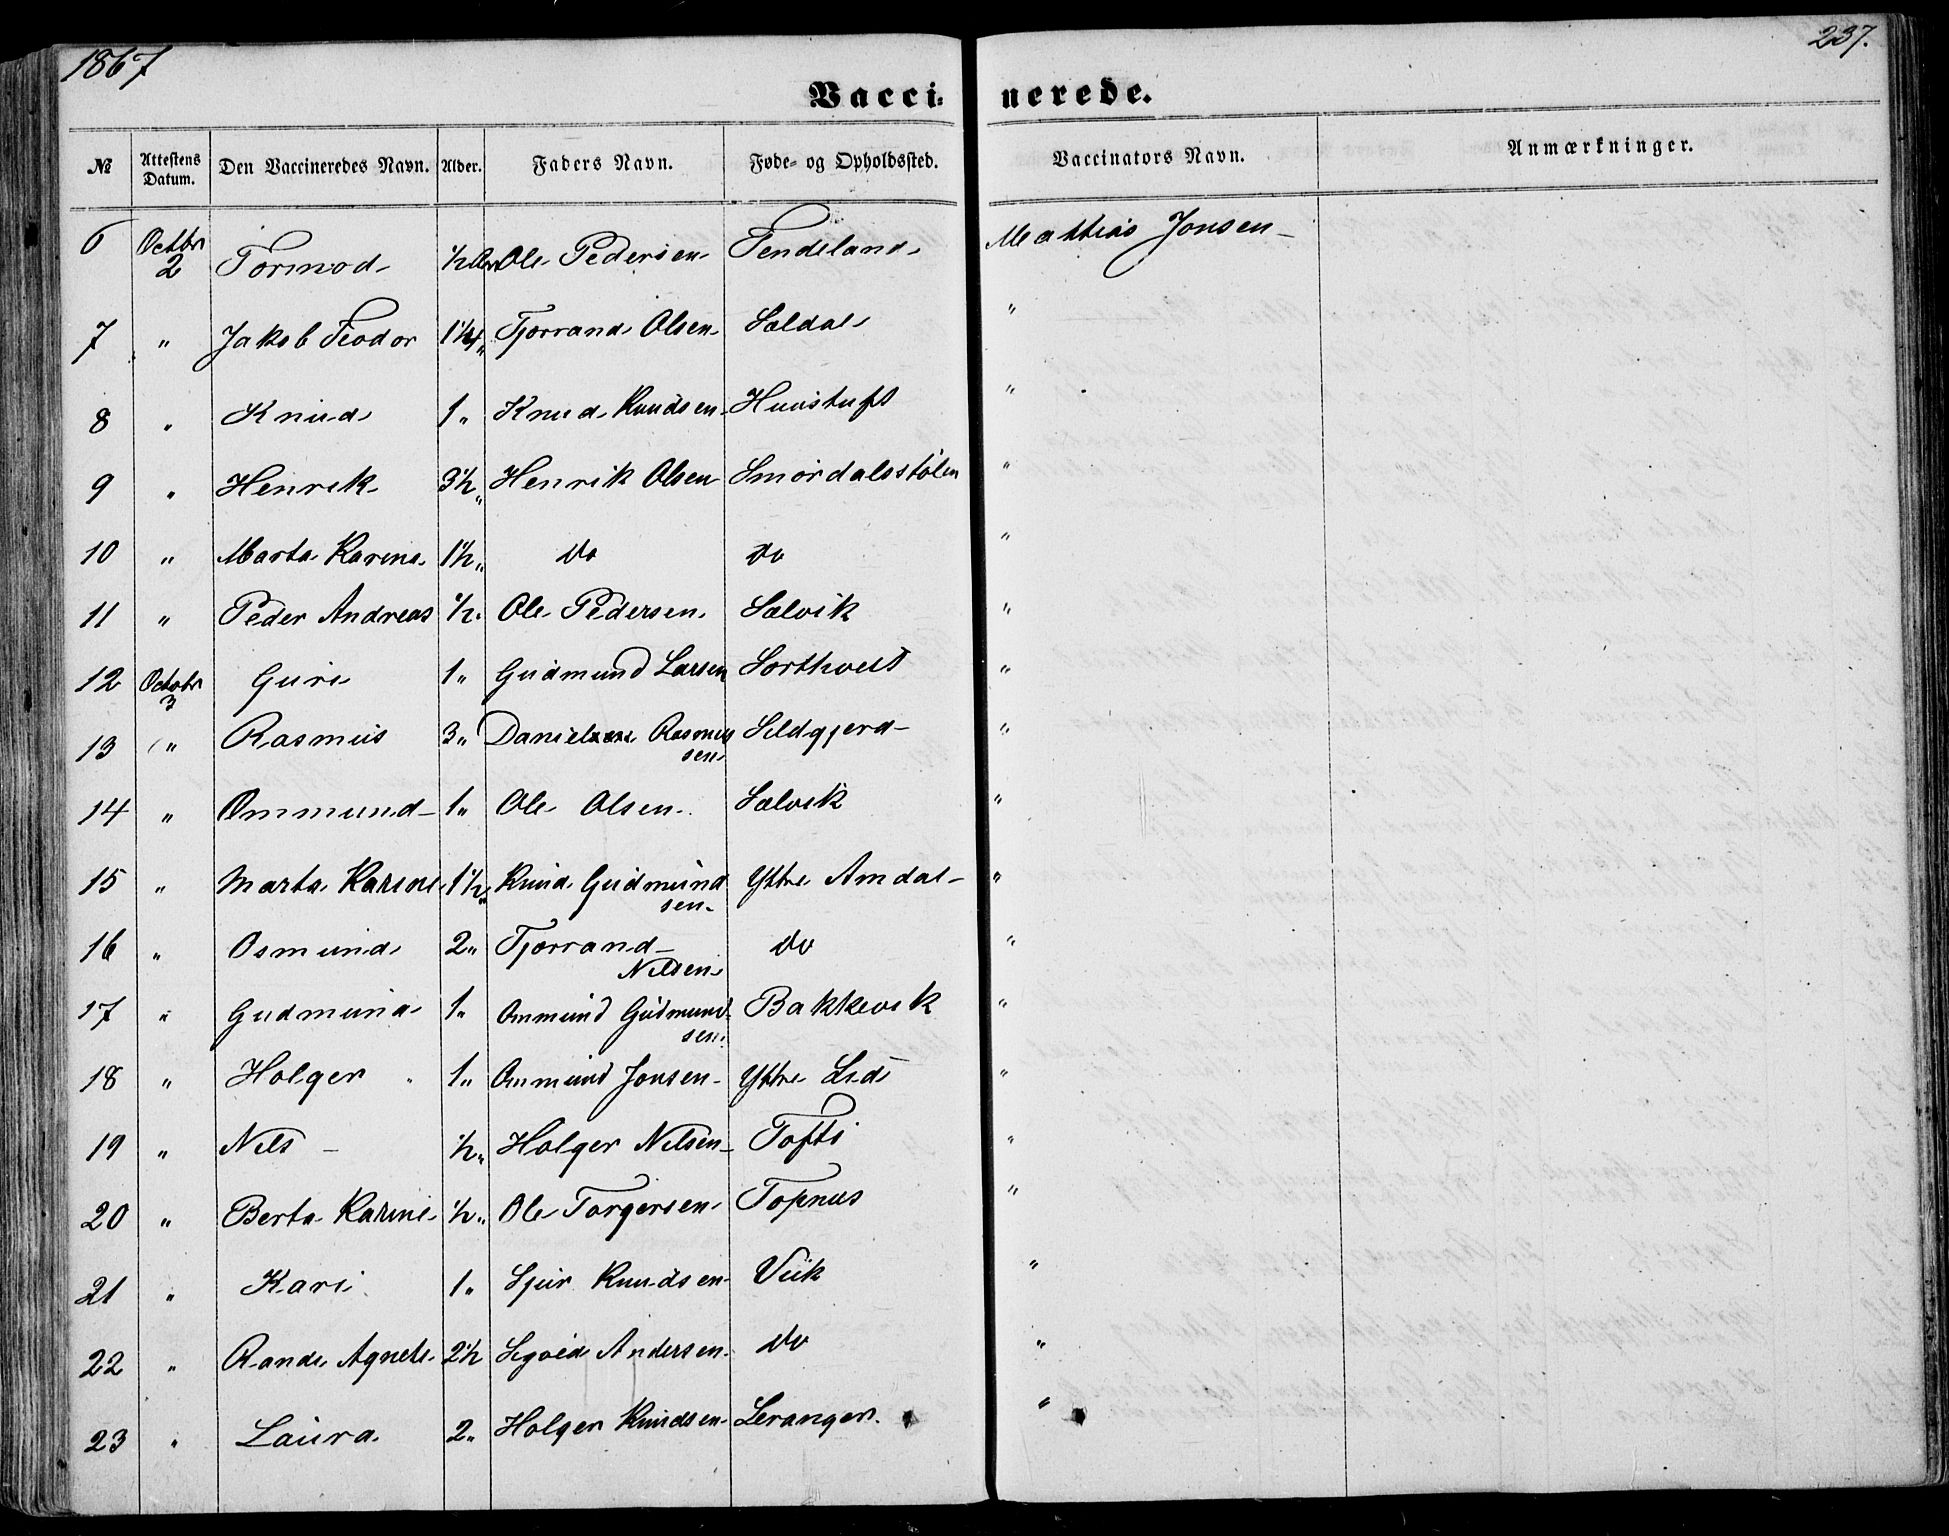 1867
237.
Vacci- nerede.
№ Attestens Datum. Den Vaccineredes Navn. Alder. Faders Navn. Føde- og Opholdssted. Vaccinators Navn. Anmærkninger.
6 Octbr 2 Tormod ½ Ole Pedersen Tendeland Mathias Jonsen
7 " Jakob Teodor 1¼ " Tjorrand Olsen Sældal "
8 " Knud 1 " Knud Knudsen Huustuft "
9 " Henrik 3½ " Henrik Olsen Smördalsstölen "
10 " Marta Karine 1½ " do do "
11 " Peder Andreas ½ " Ole Pedersen Sælvik "
12 Octobr 3 Guri 1 " Gudmund Larsen Sorthveit "
13 " Rasmus 3 " Daniel Rasmus
sen Sildgjerd "
14 " Ommund 1 " Ole Olsen Sælvik "
15 " Marta Karine 1½ " Knud Gudmund
sen Yttre Amdal "
16 " Osmund 2 " Tjorrand
Nilsen do "
17 " Gudmund 1 " Ommund Gudmund
sen Bakkevik "
18 " Holger 1 " Ommund Jonsen Yttre Lid "
19 " Nils ½ " Holger Nilsen Tofti "
20 " Berta Karine ½ " Ole Torgersen Topnus "
21 " Kari 1 " Sjur Knudsen Viik "
22 " Randi Agnete 2½ Sigvid Andersen do "
23 " Laura 2 " Holger Knudsen Leranger. "